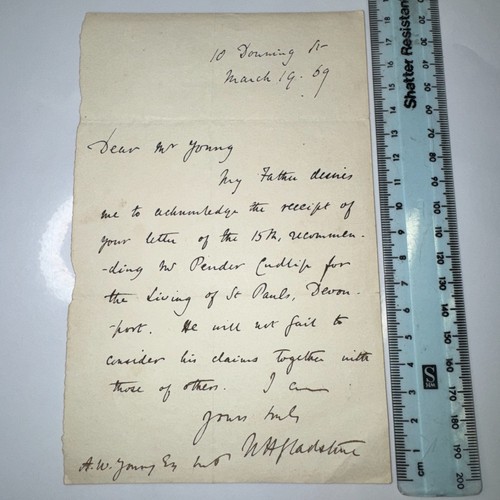 10 Downing St
March 19. 69
Dear Mr Young
My Father desires
me to acknowledge the receipt of
your letter of the 15th, recommen-
-ding Mr Pender Cudlip for
the Living of St Pauls, Devon-
-port. He will not fail to
consider his claims together with
those of others. I am
yours truly
WHGladstone
A. W. Young Esq
Shatter Resistant
10 20 30 40 50 60 70 80 90 100 110 120 130 140 150 160 170 180 190 200
1 2 3 4 5 6 7 8 9 10 11 12 13 14 15 16 17 18 19 20
cm